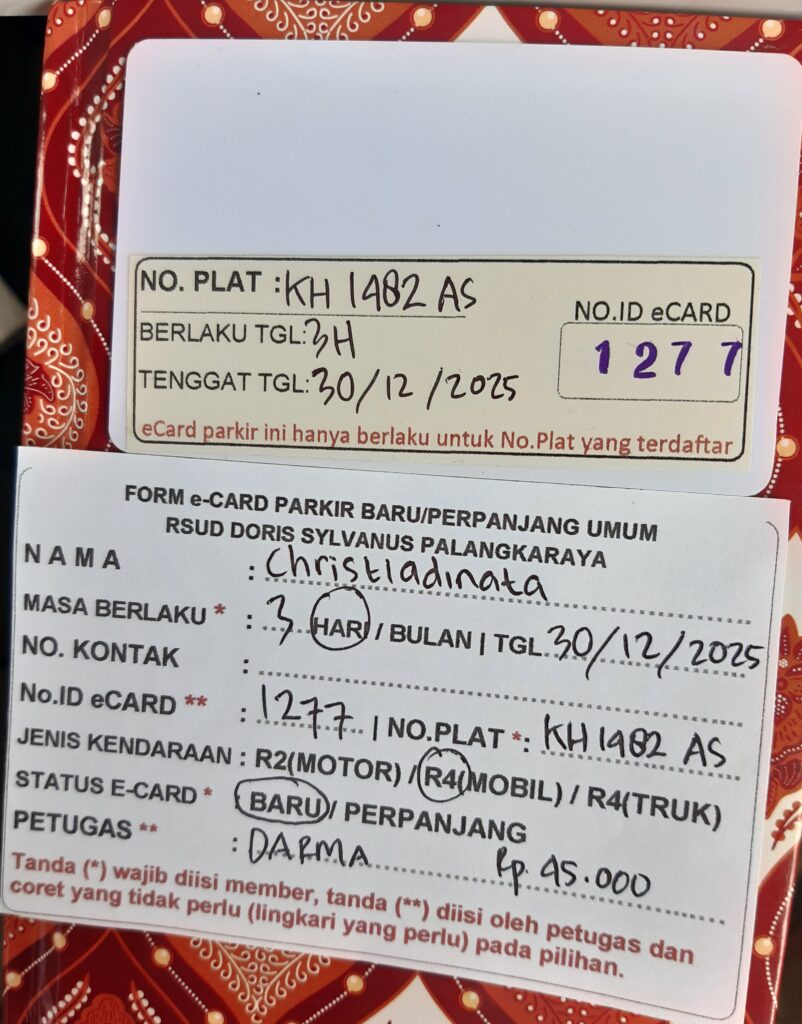 NO. PLAT : KH 1482 AS
NO.ID eCARD
BERLAKU TGL: 3H
1277
TENGGAT TGL: 30/12/2025
eCard parkir ini hanya berlaku untuk No.Plat yang terdaftar
FORM e-CARD PARKIR BARU/PERPANJANG UMUM
RSUD DORIS SYLVANUS PALANGKARAYA
NAMA : Christladinata
MASA BERLAKU * : 3 HARI / BULAN | TGL. 30/12/2025
NO. KONTAK :
No.ID eCARD ** : 1277 | NO.PLAT *: KH 1482 AS
JENIS KENDARAAN : R2(MOTOR) / R4(MOBIL) / R4(TRUK)
STATUS E-CARD * BARU / PERPANJANG
PETUGAS ** : DARMA Rp. 45.000
Tanda (*) wajib diisi member, tanda (**) diisi oleh petugas dan
coret yang tidak perlu (lingkari yang perlu) pada pilihan.